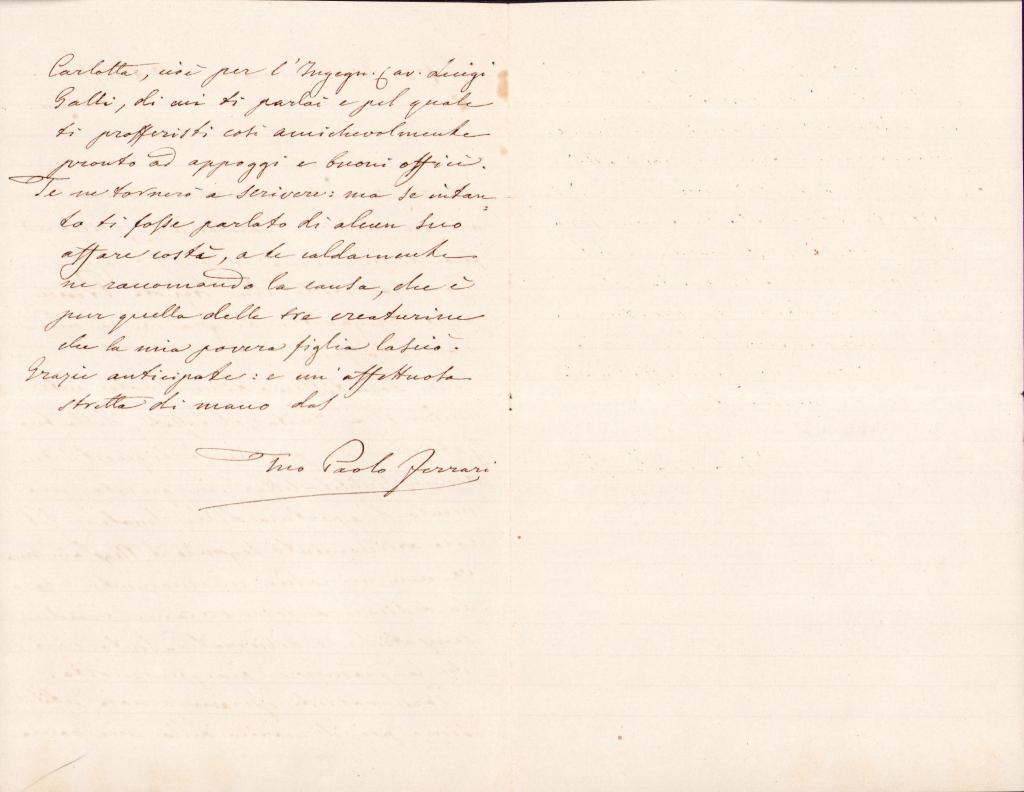 Carlotta, cioè per l'Ingegn. Cav. Luigi
Galli, di cui ti parlai e pel quale
ti profferisti così amichevolmente
pronto ad appoggi e buoni offici.
Te ne tornerò a scrivere: ma se intan=
to ti fosse parlato di alcun suo
affare costà, a te caldamente
ne raccomando la causa, che è
pur quella delle tre creaturine
che la mia povera figlia lasciò.
Grazie anticipate: e un'affettuosa
stretta di mano dal
Tuo Paolo Ferrari